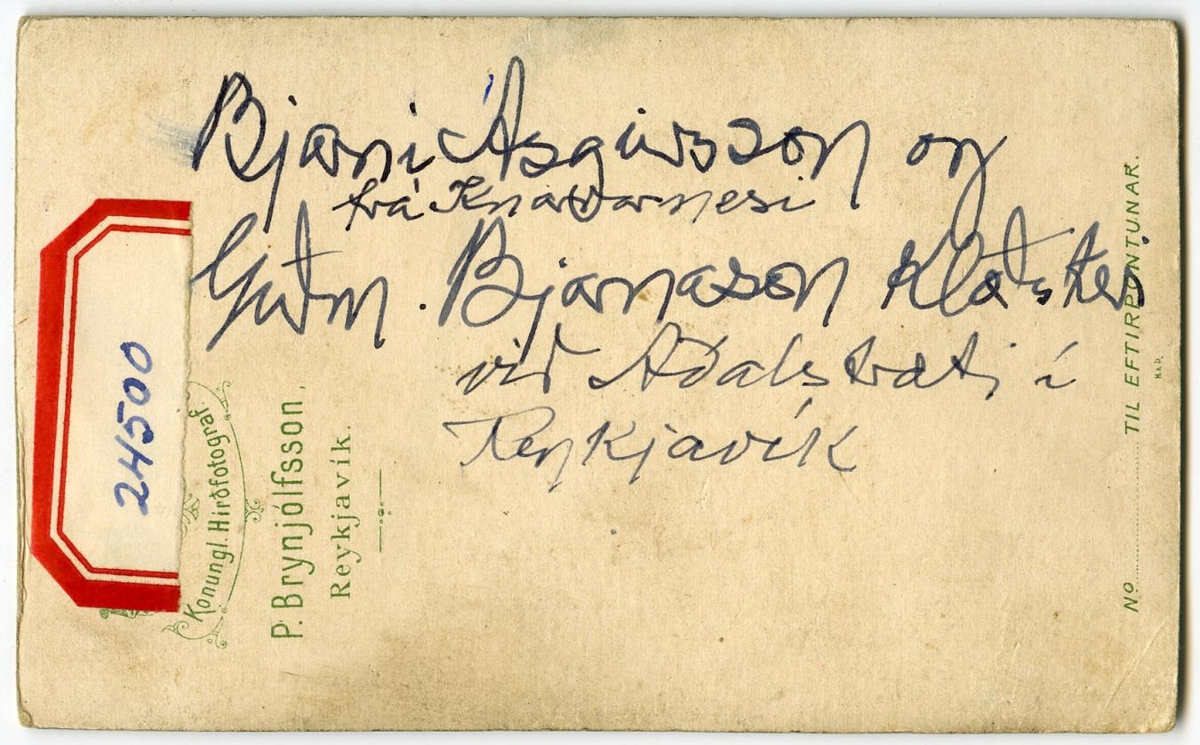 Bjarni Ásgeirsson og
frá Knararnesi
Guðm. Bjarnason Klæðskeri
við Aðalstræti í
Reykjavík
24500
Konungl. Hirðfotograf
P. Brynjólfsson,
Reykjavík.
No TIL EFTIRPÖNTUNAR.
H.&D.